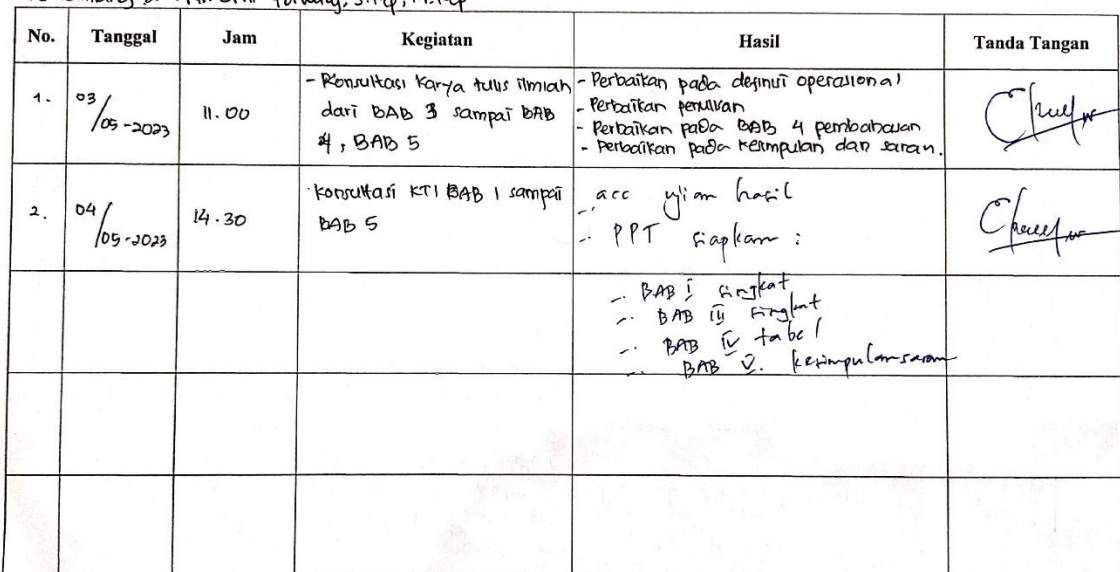 S.Kep, M.Kep
No. Tanggal Jam Kegiatan Hasil Tanda Tangan
1. 03/05-2023 11.00
- Konsultasi Karya tulis ilmiah
dari BAB 3 sampai BAB
4, BAB 5
- Perbaikan pada definisi operasional
- Perbaikan penulisan
- Perbaikan pada BAB 4 pembahasan
- Perbaikan pada kesimpulan dan saran.
2. 04/05-2023 14.30
konsultasi KTI BAB 1 sampai
BAB 5
- acc ujian hasil
- PPT siapkan :
- BAB I singkat
- BAB III singkat
- BAB IV tabel
- BAB V. kesimpulan saran